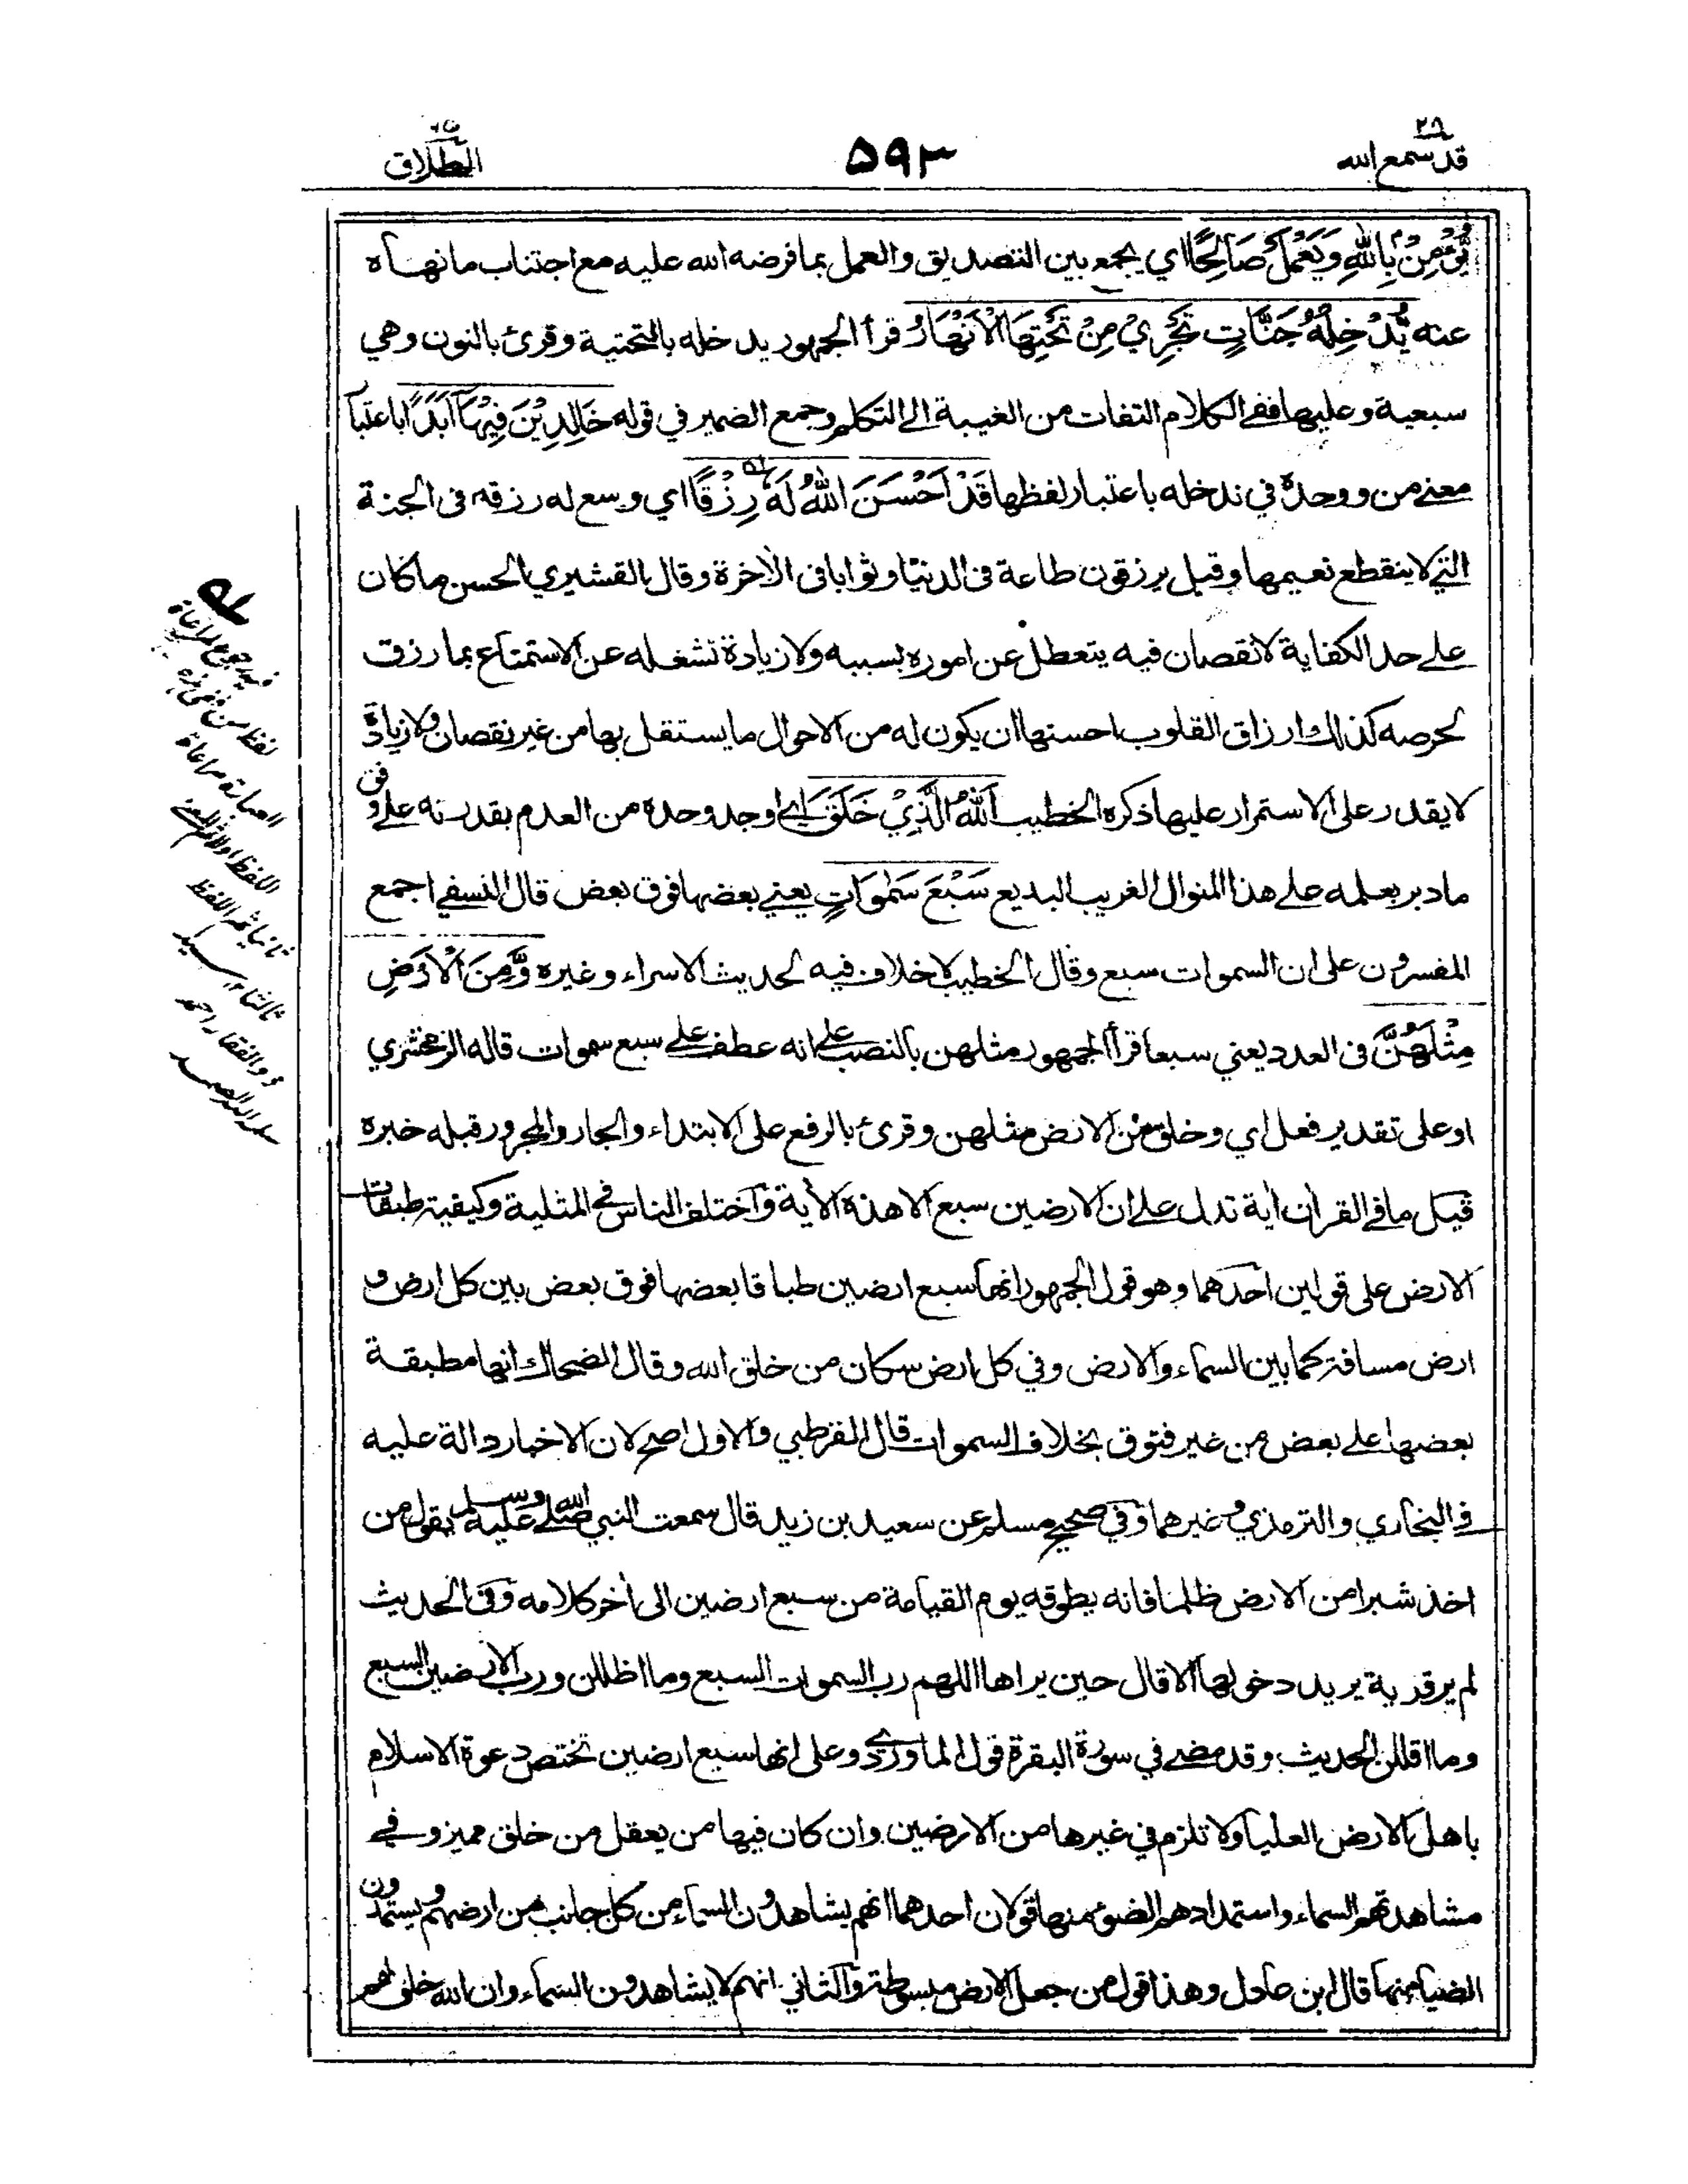 قد سمع الله ٢٨
٥٩٣
الطلاق ٦٥
يُّؤْمِنْ بِاللهِ وَيَعْمَلْ صَالِحًا اي يجمع بين التصديق والعمل بما فرضه الله عليه مع اجتناب ما نهاه
عنه يُّدْخِلْهُ جَنَّاتٍ تَجْرِيْ مِنْ تَحْتِهَا الْاَنْهَارُ قرأ الجمهور يدخله بالتحتية وقرئ بالنون وهي
سبعية وعليها ففي الكلام التفات من الغيبة الى التكلم وجمع الضمير في قوله خَالِدِيْنَ فِيْهَآ اَبَدًا باعتبا
معنى من ووحدة في ندخله باعتبار لفظها قَدْ اَحْسَنَ اللهُ لَهٗ رِزْقًا اي وسع له رزقه فى الجنة
التي لا ينقطع نعيمها وقيل يرزقون طاعة فى الدنيا وثوابا فى الأخرة وقال القشيري الحسن ما كان
على حد الكفاية لا نقصان فيه يتعطل عن اموره بسببه ولا زيادة تشغله عن الاستمتاع بما رزق
لحرصه كذلك ارزاق القلوب احسنها ان يكون له من الاحوال ما يستقل بها من غير نقصان ولا زيادة
لا يقدر على الاستمرار عليها ذكره الخطيب اَللهُ الَّذِيْ خَلَقَ اي اوجد وحدة من العدم بقدرته على وفق
ما دبر بعلمه على هذا المنوال الغريب البديع سَبْعَ سَمٰوَاتٍ يعني بعضها فوق بعض قال النسفي اجمع
المفسرون على ان السموات سبع وقال الخطيب لا خلاف فيه لحديث الاسراء وغيره وَّمِنَ الْاَرْضِ
مِثْلَهُنَّ فى العدد يعني سبعا قرأ الجمهور مثلهن بالنصب على انه عطف على سبع سموات قاله الزمخشري
او على تقدير فعل اي وخلق من الارض مثلهن وقرئ بالرفع على الابتداء والجار والمجرور قبله خبره
قيل ما في القرأن أية تدل على ان الارضين سبع الا هذه الأية واختلف الناس في المثلية وكيفية طبقات
الارض على قولين احدهما وهو قول الجمهور انها سبع ارضين طباقا بعضها فوق بعض بين كل ارض و
ارض مسافة كما بين السماء والارض وفي كل ارض سكان من خلق الله وقال الضحاك انها مطبقة
بعضها على بعض من غير فتوق بخلاف السموات قال القرطبي والاول اصح لان الاخبار دالة عليه
في البخاري والترمذي وغيرهما وفي صحيح مسلم عن سعيد بن زيد قال سمعت النبي صلى الله عليه وسلم يقول من
اخذ شبرا من الارض ظلما فانه يطوقه يوم القيامة من سبع ارضين الى أخر كلامه وفى الحديث
لم ير قرية يريد دخولها الا قال حين يراها اللهم رب السموات السبع وما اظللن ورب الارضين السبع
وما اقللن الحديث وقد مضى في سورة البقرة قول الماوردي وعلى انها سبع ارضين تختص دعوة الاسلام
باهل الارض العليا ولا تلزم في غيرها من الارضين وان كان فيها من يعقل من خلق مميز وفي
مشاهدتهم السماء واستمدادهم الضوء منها قولان احدهما انهم يشاهدون السماء من كل جانب من ارضهم ويستمدون
الضياء منها قال ابن عادل وهذا قول من جعل الارض مبسوطة والثاني انهم لا يشاهدون السماء وان الله خلق لهم
لفظ من ففي هذه
العبارة مراعاة
اللفظ اولا ثم المعنى
ثانيا ثم اللفظ
ثالثا سيد
ذوالفقار احمد